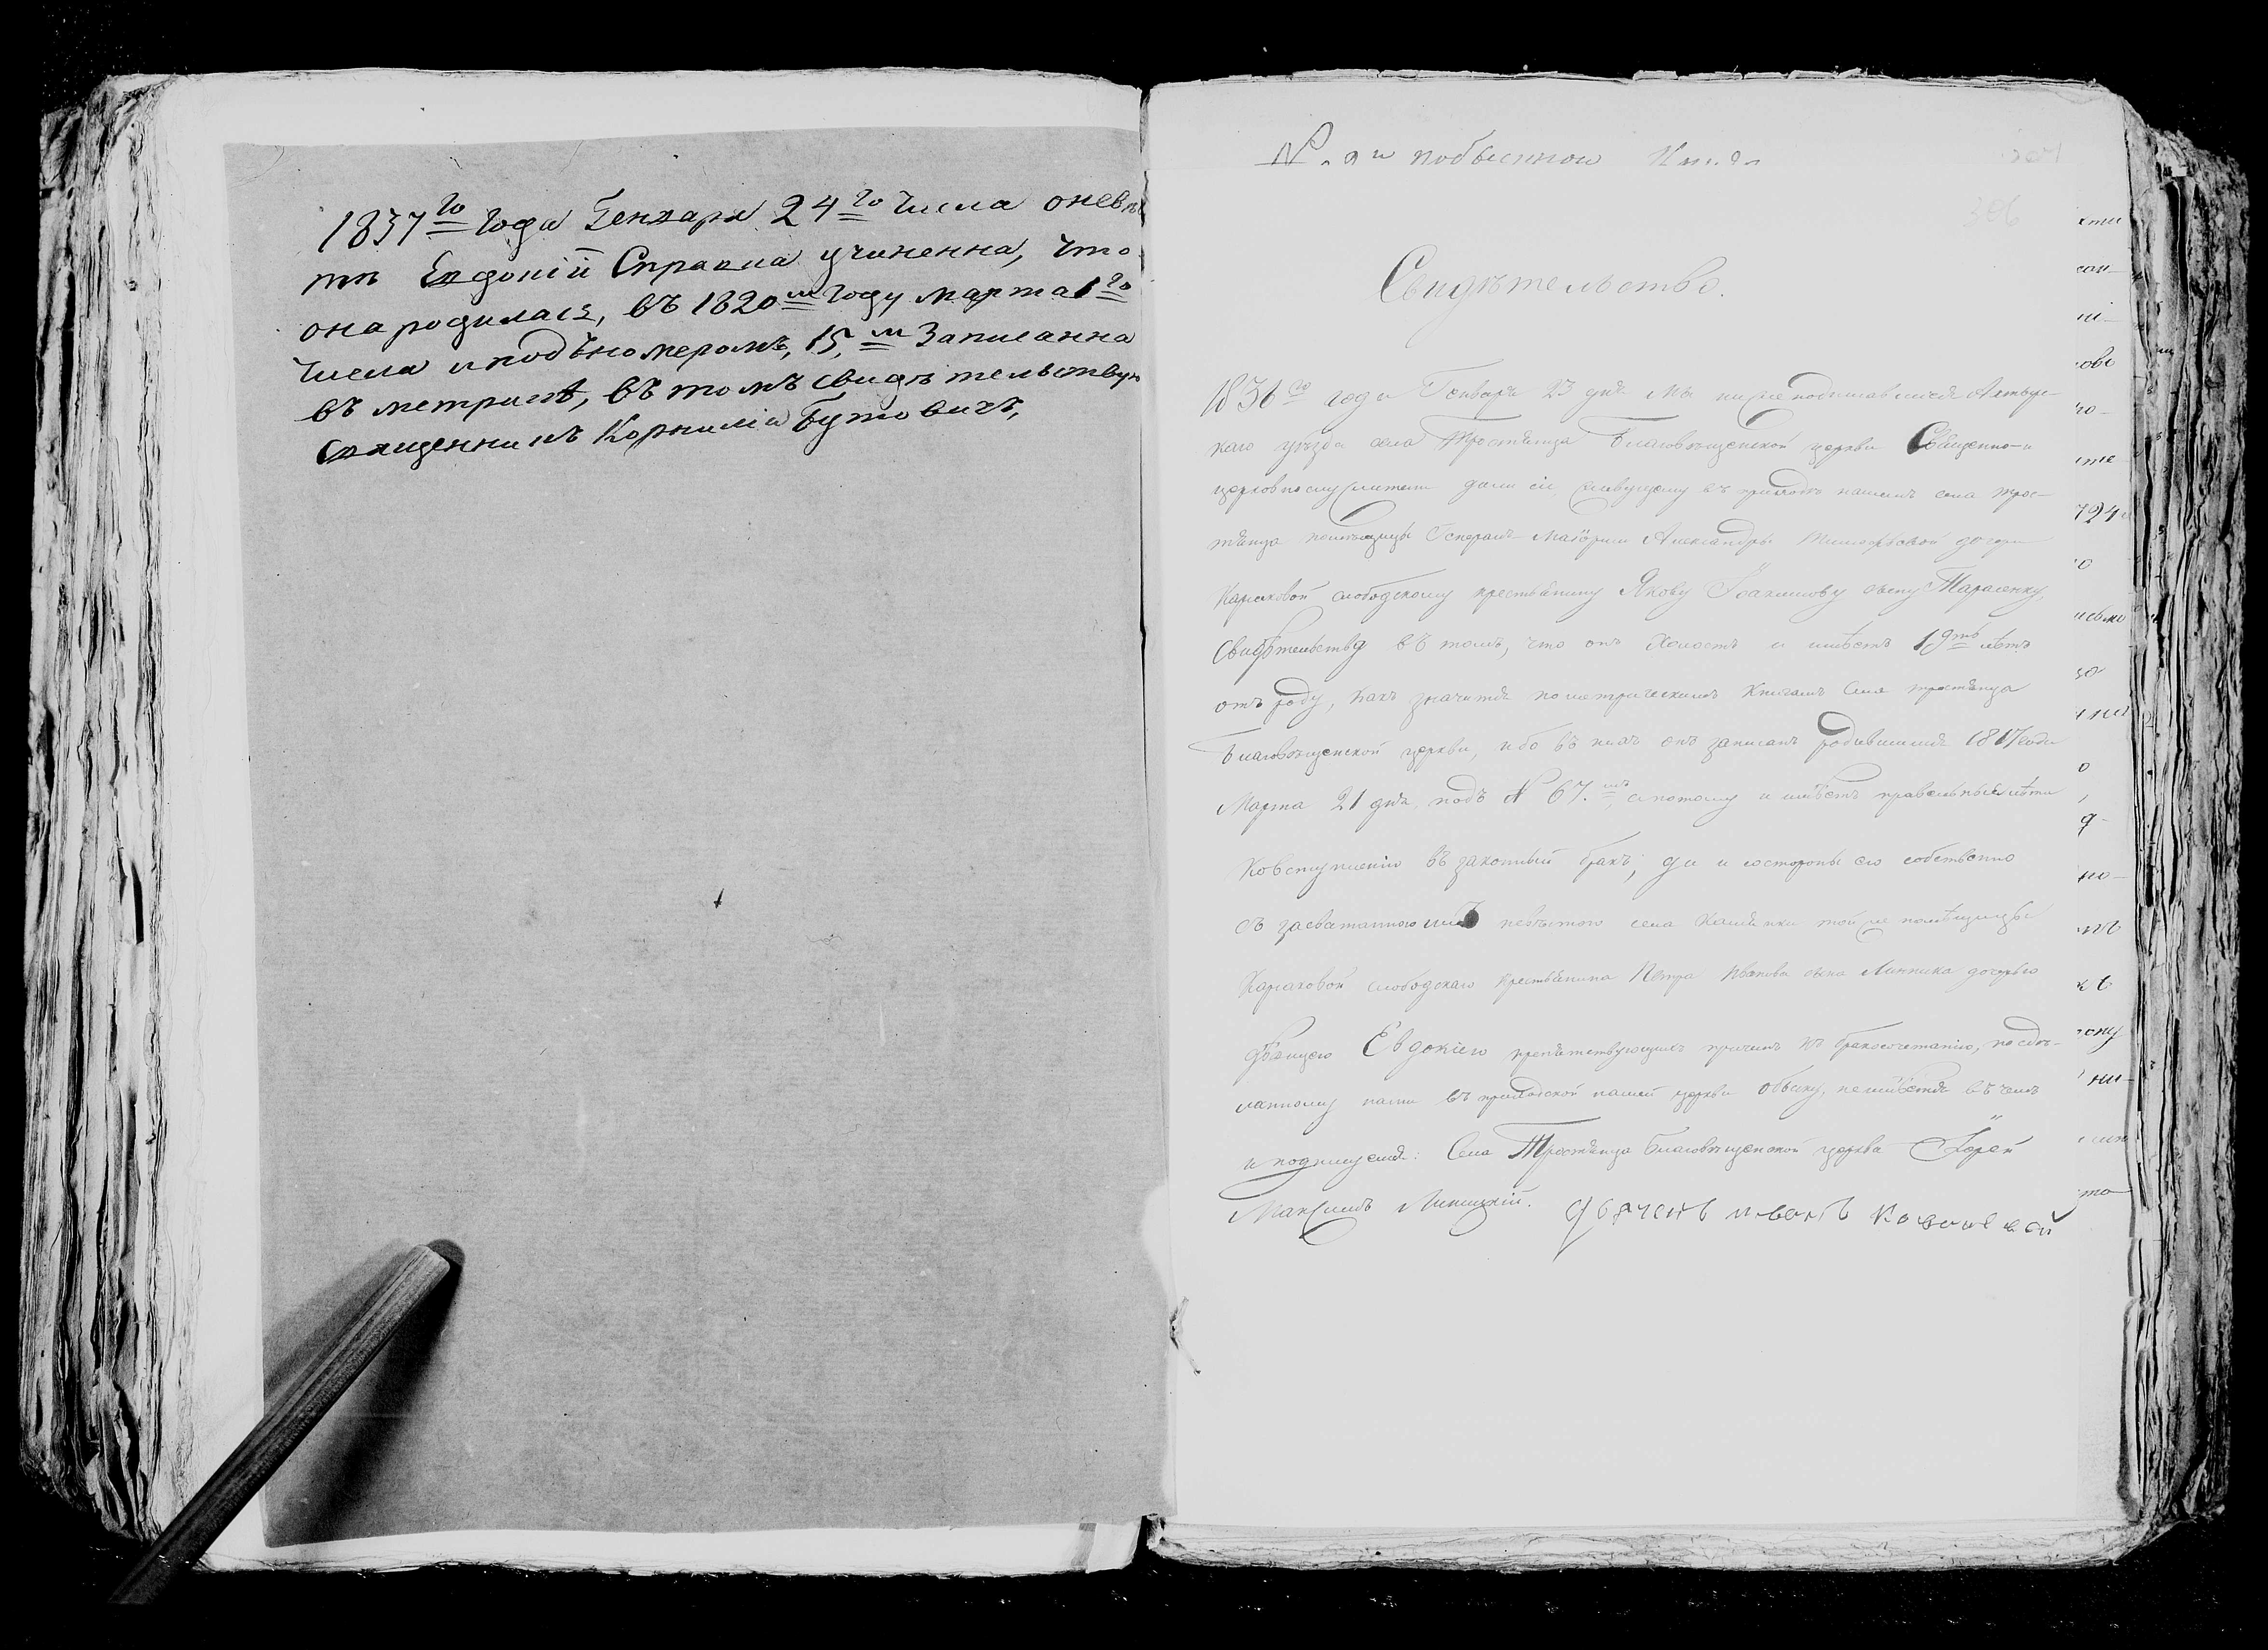 1837го года Генваря 24го числа оневѣ
тѣ Евдокіи Справка учиненна, что
она родилась, въ 1820м году марта 1го
числа и подъ номеромъ, 15,м Записанна
въ метрикѣ, въ томъ свидѣтельствую
Священникъ Корнилій Бутовичъ,
№
306
Свидѣтельство.
1836го года Генваря 23 дня Мы нижеподписавшіеся
каго уѣзда села Тростянца Благовѣщенской церкви Священно-и
церковнослужители дали сіе жительствующему въ приходѣ нашемъ села трос-
тянца помѣщицы Генералъ Маіорши Александры дочери
слободскому крестьянину Якову Іоакимову сыну Тарасенку,
Свидѣтельство въ томъ, что онъ Холостъ и имѣетъ 19ть лѣтъ
отъ роду, какъ значится по метрическимъ Книгамъ Села тростянца
Благовѣщенской церкви, ибо въ нихъ онъ записанъ родившимся 1817 года
Марта 21 дня, подъ № 67.мъ, а потому и имѣетъ правильныя лѣта
Ко вступленію въ законный бракъ; да и состороны его собственно
съ засватанною имъ невѣстою села той же помѣщицы
слободскаго Крестьянина Петра Иванова сына Линника дочерью
дѣвицею Евдокіею препятствующихъ причинъ къ бракосочетанію, по сдѣ-
ланному нами въ приходской нашей церкви обыску, неимѣется въ чемъ
и подпишемся: Села Тростянца Благовѣщенской церкви Іерей
Максимъ Липицкій. дьячекъ иванъ